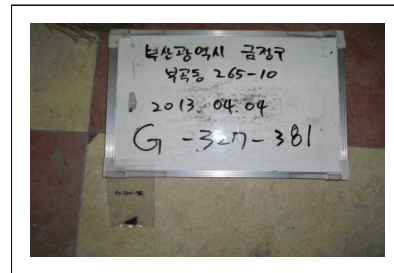 부산광역시 금정구
부곡동 265-10
2013.04.04
G-327-381